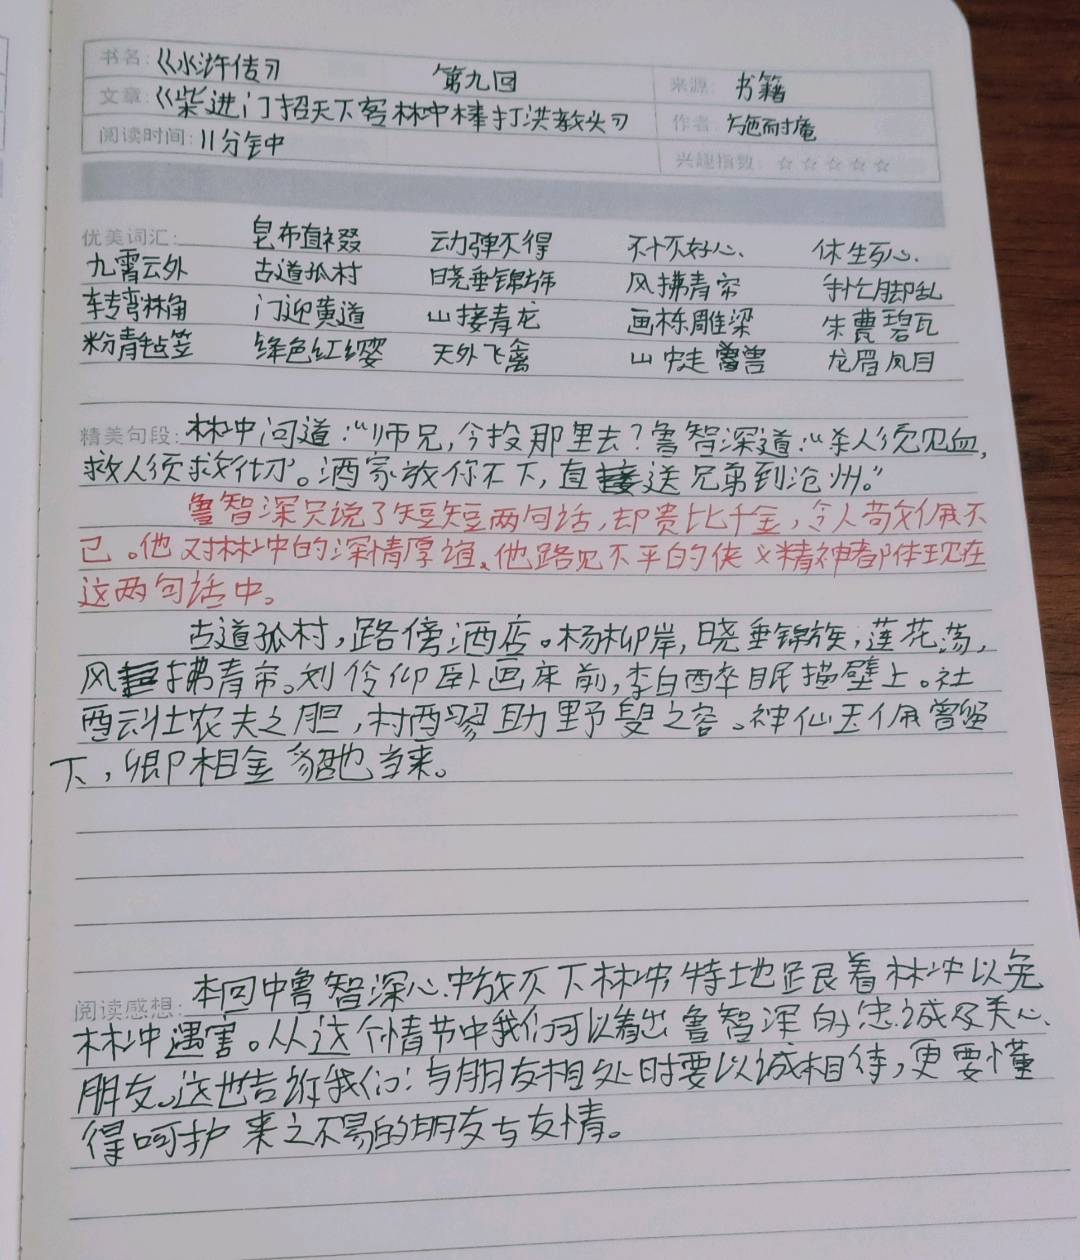 书名：《水浒传》 第九回 来源：书籍
文章：《柴进门招天下客 林冲棒打洪教头》 作者：施耐庵
阅读时间：11分钟 兴趣指数：☆☆☆☆☆
优美词汇： 皂布直裰 动弹不得 不怀好心 休生歹心
九霄云外 古道孤村 晓垂锦旆 风拂青帘 手忙脚乱
转弯林角 门迎黄道 山接青龙 画栋雕梁 朱甍碧瓦
粉青毡笠 绛色红缨 天外飞禽 山中走兽 龙眉凤目
精美句段：林冲问道：“师兄，今投那里去？鲁智深道：“杀人须见血，
救人须救彻。洒家放你不下，直接送兄弟到沧州。”
鲁智深只说了短短两句话，却贵比千金，令人敬佩不
已。他对林冲的深情厚谊、他路见不平的侠义精神都体现在
这两句话中。
古道孤村，路傍酒店。杨柳岸，晓垂锦旆，莲花荡，
风拂青帘。刘伶仰卧画床前，李白醉眠描壁上。社
酝壮农夫之胆，村醪助野叟之容。神仙玉佩曾留
下，卿相金貂也当来。
阅读感想： 本回中鲁智深心中放不下林冲特地跟着林冲以免
林冲遇害。从这个情节中我们可以看出鲁智深的忠诚及关心
朋友。这也告诉我们：与朋友相处时要以诚相待，更要懂
得呵护来之不易的朋友与友情。